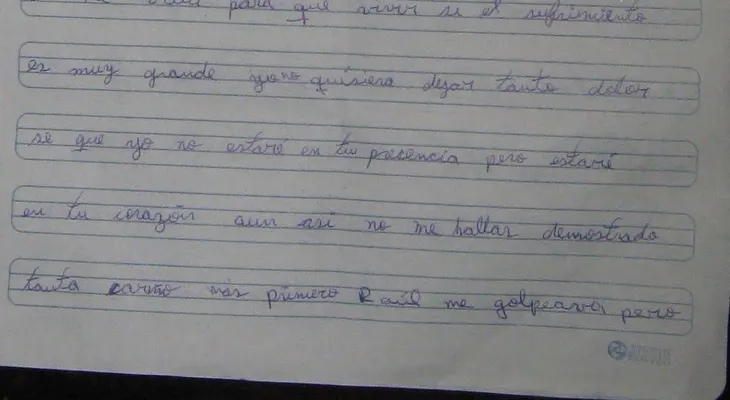 para que vivir si el sufrimiento
es muy grande yo no quisiera dejar tanto dolor
se que yo no estaré en tu precencia pero estaré
en tu corazón aun asi no me hallas demostrado
tanto cariño mas primero Raúl me golpeava pero